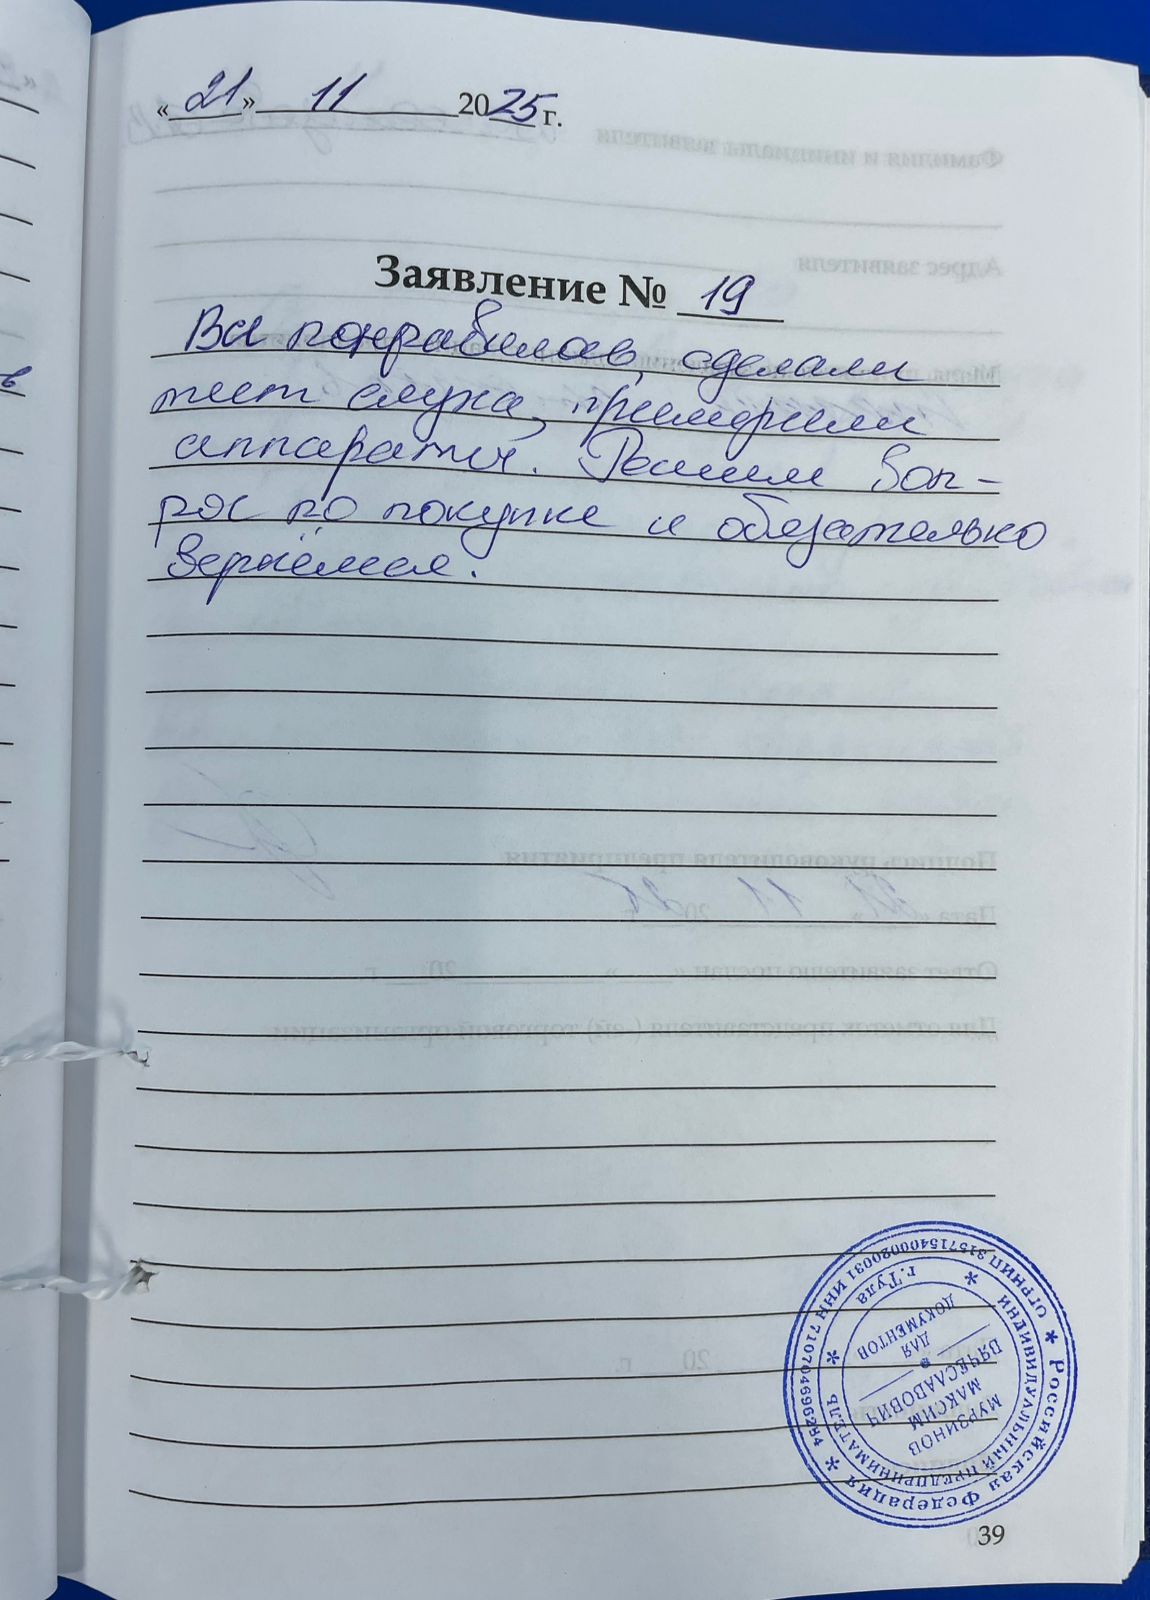 «21» 11 2025 г.
Заявление № 19
Вс понравилось, сделали
тест слуха, примерили
аппараты. Решим воп-
рос по покупке и обязательно
вернёмся.
Российская Федерация
ИНДИВИДУАЛЬНЫЙ ПРЕДПРИНИМАТЕЛЬ
г. Тула
МУРЗИНОВ
МАКСИМ
ВЯЧЕСЛАВОВИЧ
ДЛЯ
ДОКУМЕНТОВ
39